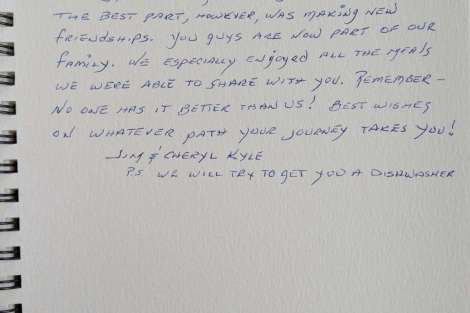 THE BEST PART, HOWEVER, WAS MAKING NEW
FRIENDSHIPS. YOU GUYS ARE NOW PART OF OUR
FAMILY. WE ESPECIALLY ENJOYED ALL THE MEALS
WE WERE ABLE TO SHARE WITH YOU. REMEMBER -
NO ONE HAS IT BETTER THAN US! BEST WISHES
ON WHATEVER PATH YOUR JOURNEY TAKES YOU!
JIM & CHERYL KYLE
P.S. WE WILL TRY TO GET YOU A DISHWASHER